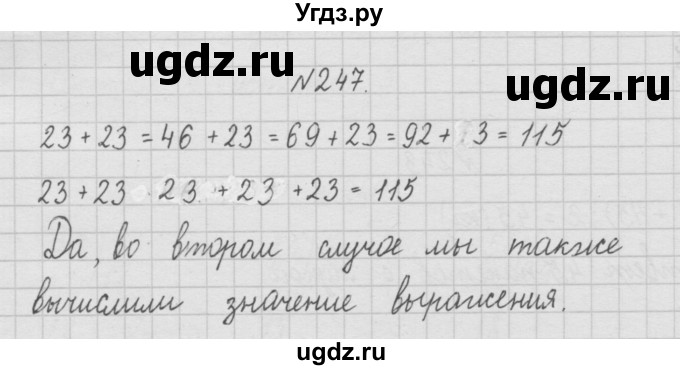 Угдз.ру
ugdz.ru ugdz.ru
N247.
ugdz.ru
23 + 23 = 46 + 23 = 69 + 23 = 92 + 3 = 115
23 + 23 23 + 23 + 23 = 115
Да, во втором случае мы также
вычислили значение выражения.
ugdz.ru
ugdz.ru